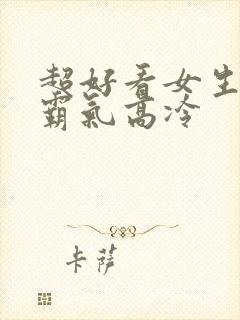 超好看女生
霸氣高冷
卡薩